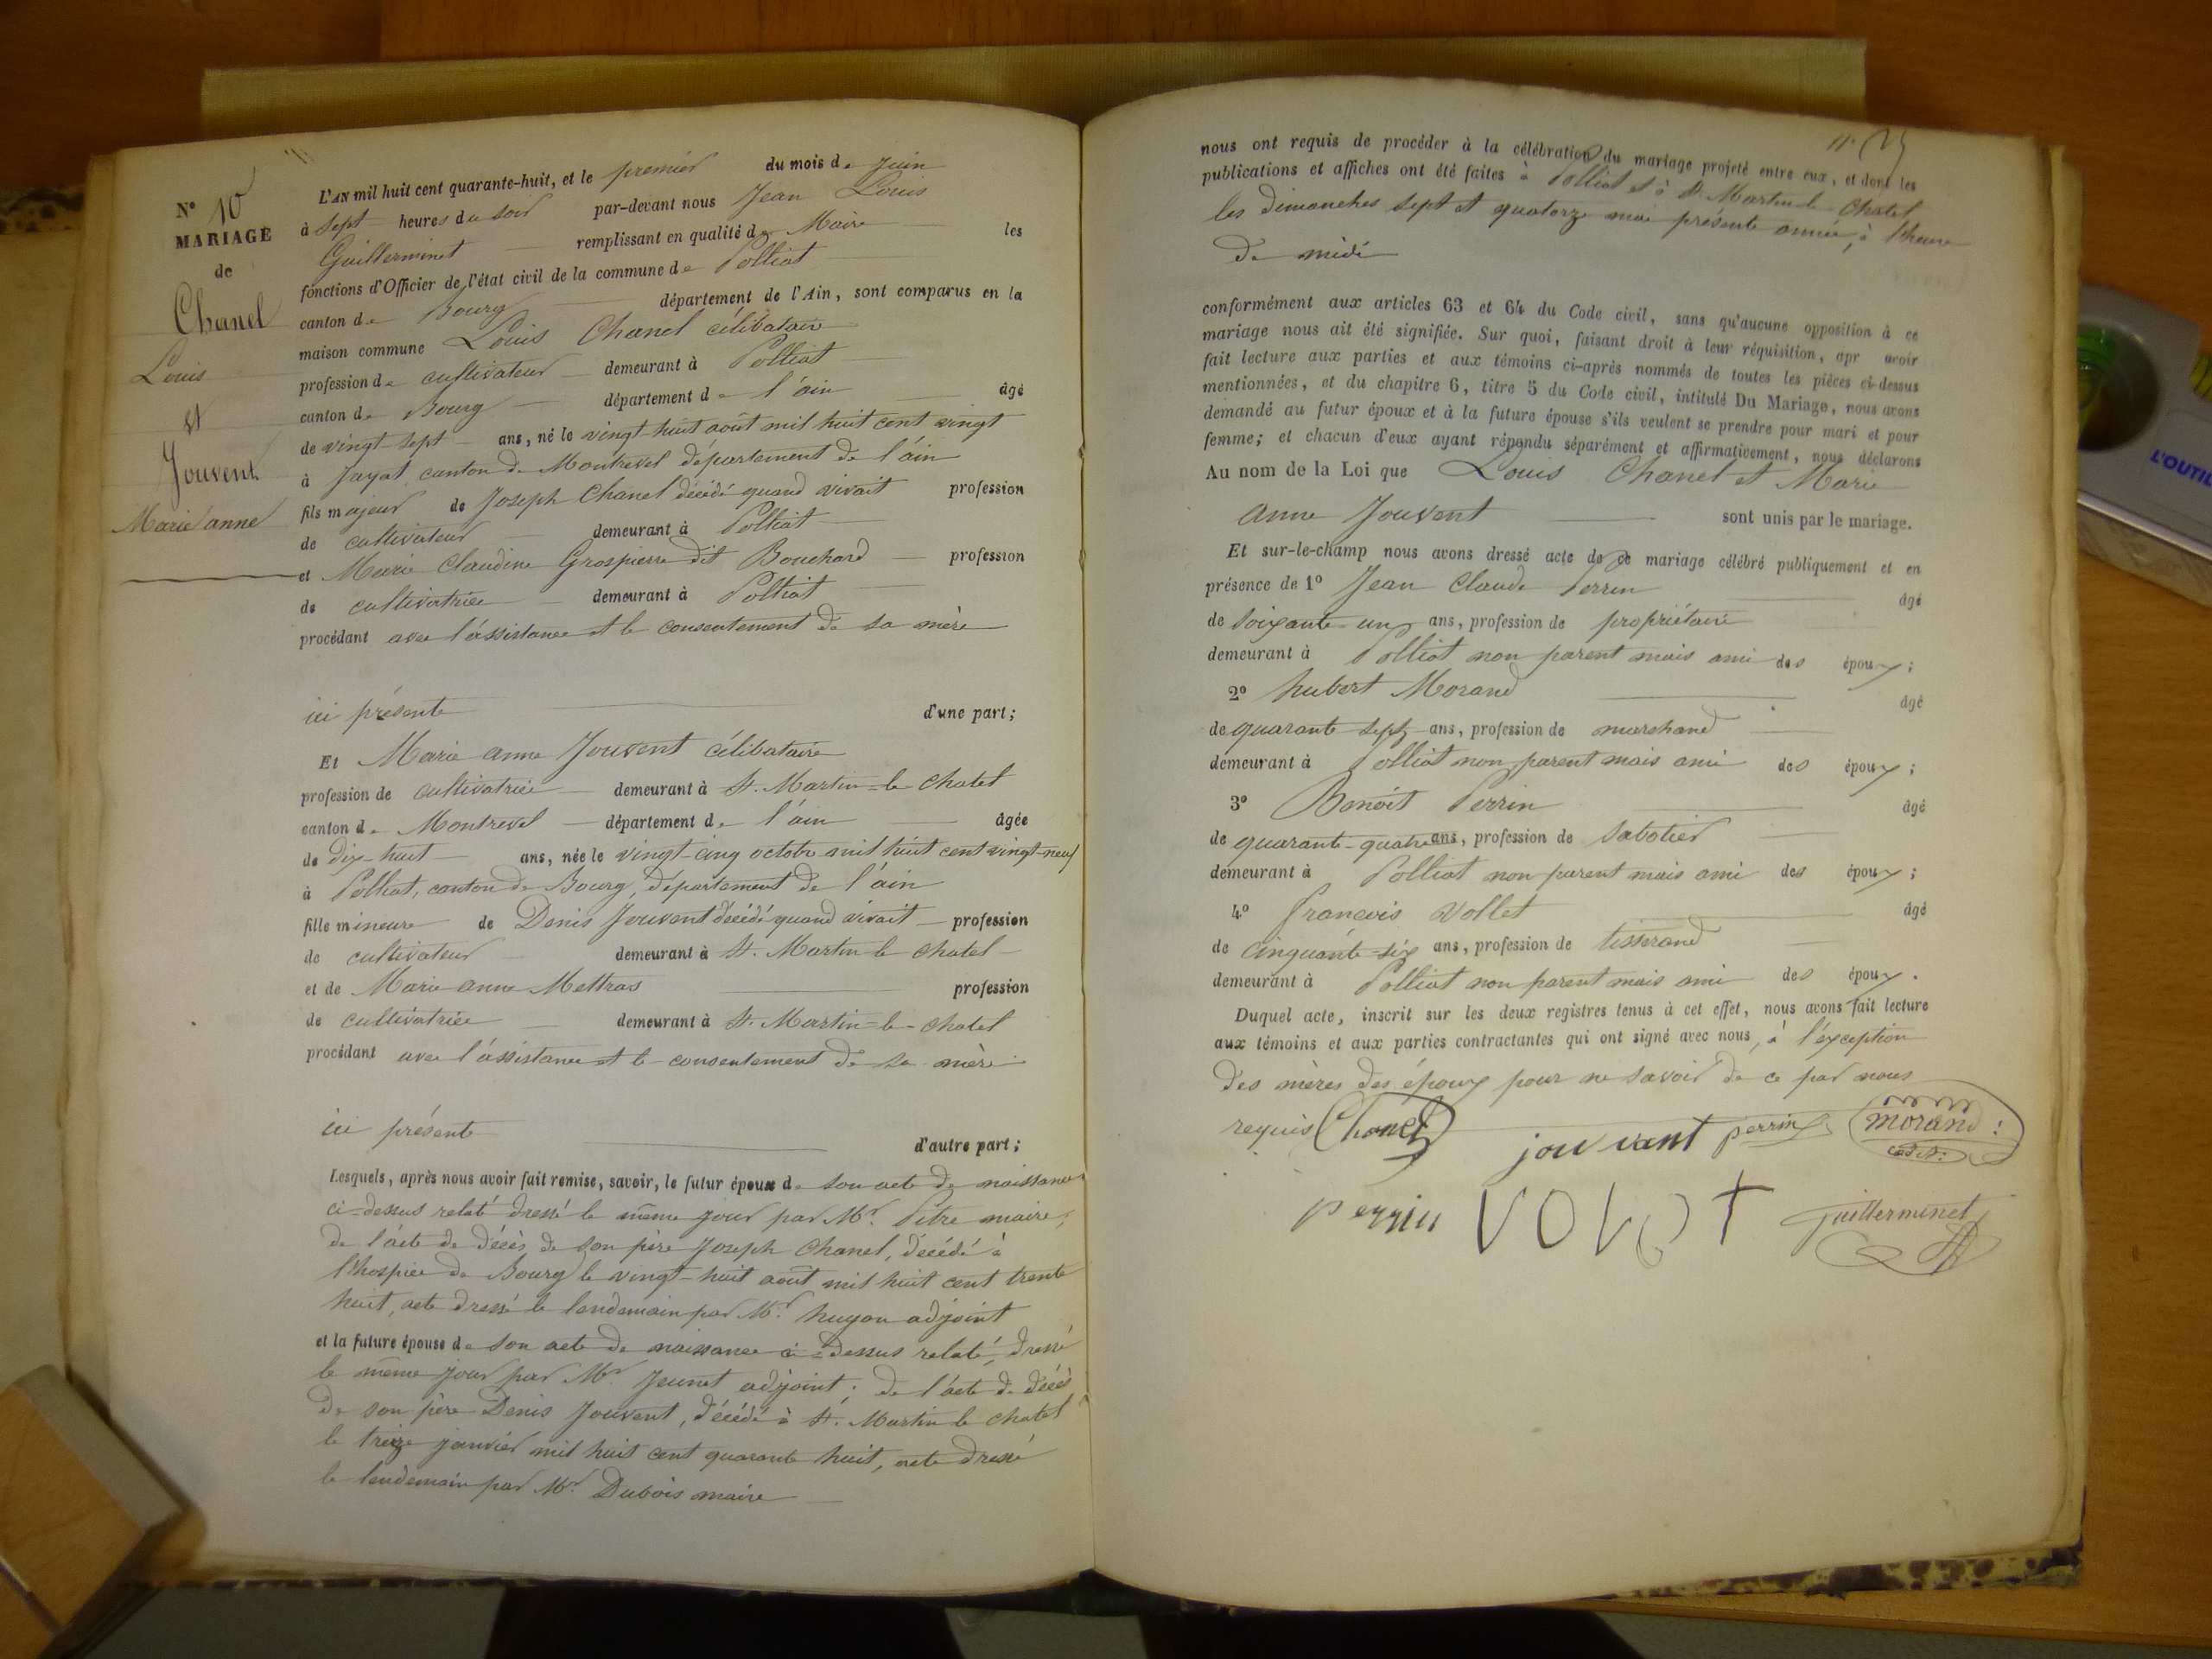 N° 10
MARIAGE
de
Chanel
Louis
et
Jouvent
Marie anne
L'AN mil huit cent quarante-huit, et le premier du mois de Juin
à sept heures du soir par-devant nous Jean Louis
Guillerminet remplissant en qualité de Maire les
fonctions d'Officier de l'état civil de la commune de Polliat
canton de Bourg département de l'Ain, sont comparus en la
maison commune Louis Chanel célibataire
profession de cultivateur demeurant à Polliat
canton de Bourg département de l'ain âgé
de vingt-sept ans, né le vingt huit août mil huit cent vingt
à Jayat, canton de Montrevel département de l'ain
fils majeur de Joseph Chanel décédé quand vivait profession
de cultivateur demeurant à Polliat
et Marie Claudine Grospierre dit Bouchard profession
de cultivatrice demeurant à Polliat
procédant avec l'assistance et le consentement de sa mère
ici présente d'une part;
Et Marie anne Jouvent célibataire
profession de cultivatrice demeurant à St. Martin-le-Chatel
canton de Montrevel département de l'ain âgée
de dix-huit ans, née le vingt-cinq octobre mil huit cent vingt-neuf
à Polliat, canton de Bourg, département de l'ain
fille mineure de Denis Jouvent décédé quand vivait profession
de cultivateur demeurant à St. Martin-le-chatel
et de Marie anne Mettras profession
de cultivatrice demeurant à St. Martin-le-chatel
procédant avec l'assistance et le consentement de sa mère
ici présente d'autre part;
Lesquels, après nous avoir fait remise, savoir, le futur époux de son acte de naissance
ci-dessus relaté dressé le même jour par Mr. Pitre maire,
de l'acte de décès de son père Joseph Chanel, décédé à
l'hospice de Bourg le vingt-huit août mil huit cent trente
huit, acte dressé le lendemain par Mr. hugon adjoint
et la future épouse de son acte de naissance ci-dessus relaté, dressé
le même jour par Mr. Jeunet adjoint; de l'acte de décès
de son père Denis Jouvent, décédé à St. Martin le chatel
le treize janvier mil huit cent quarante huit, acte dressé
le lendemain par Mr. Dubois maire
11.
nous ont requis de procéder à la célébration du mariage projeté entre eux, et dont les
publications et affiches ont été faites à Polliat et à St. Martin-le-Chatel
les dimanches sept et quatorze mai présente année, à l'heure
de midi
conformément aux articles 63 et 64 du Code civil, sans qu'aucune opposition à ce
mariage nous ait été signifiée. Sur quoi, faisant droit à leur réquisition, apr avoir
fait lecture aux parties et aux témoins ci-après nommés de toutes les pièces ci-dessus
mentionnées, et du chapitre 6, titre 5 du Code civil, intitulé Du Mariage, nous avons
demandé au futur époux et à la future épouse s'ils veulent se prendre pour mari et pour
femme; et chacun d'eux ayant répondu séparément et affirmativement, nous déclarons
Au nom de la Loi que Louis Chanel et Marie
anne Jouvent sont unis par le mariage.
Et sur-le-champ nous avons dressé acte de ce mariage célébré publiquement et en
présence de 1° Jean Claude Perrin âgé
de soixante-un ans, profession de propriétaire
demeurant à Polliat non parent mais ami des époux;
2° hubert Morand âgé
de quarante sept ans, profession de marchand
demeurant à Polliat non parent mais ami des époux;
3° Benoit Perrin âgé
de quarante-quatre ans, profession de sabotier
demeurant à Polliat non parent mais ami des époux;
4° francois Vollet âgé
de cinquante-six ans, profession de tisserand
demeurant à Polliat non parent mais ami des époux.
Duquel acte, inscrit sur les deux registres tenus à cet effet, nous avons fait lecture
aux témoins et aux parties contractantes qui ont signé avec nous, à l'exception
des mères des époux pour ne savoir de ce par nous
requis Chanel jouvent perrin morand
perrin Guillerminet
L'OUTIL